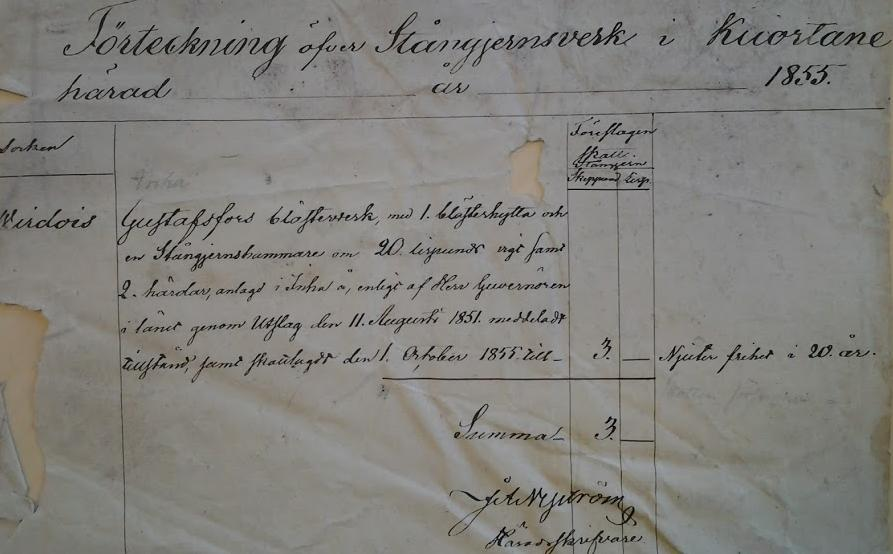 Förteckning öfver Stångjernsverk i Kuortane
härad år 1855.
Socken
Föreslagen
skatt.
Stångjern
Skeppund Lispd.
Wirdois
Gustafsfors blästerverk, med 1. blästerhytta och
en Stångjernshammare om 20. lispunds vigt samt
2. härdar, anlagd i Inha å, enligt af Herr Guvernören
i länet genom Utslag den 11. Augusti 1851. meddeladt
tillstånd, samt skattlagdt den 1. October 1855. till _ 3. _ Njuter frihet i 20. år.
Summa _ 3. _
Nyström
Häradsskrifvare